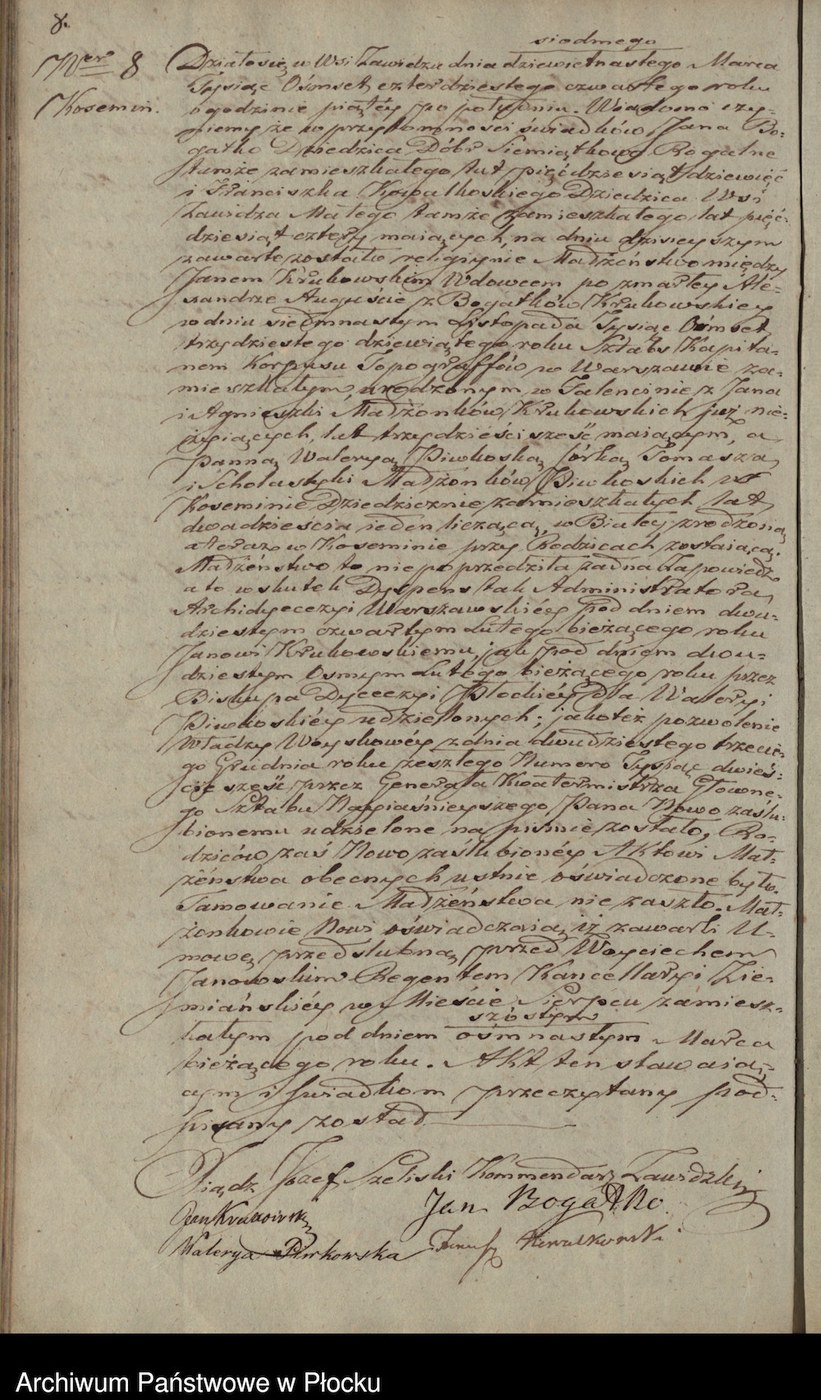 8.
siodmego
Nero 8 Działo się w Wsi Zawidzu dnia dziewietnastego Marca
Kosemin. Tysiąc Ośmset czterdziestego czwartego roku
o godzinie piątéy po południu. Wiadomo czy-
niemy że w przytomności świadków, Jana Bo-
gatko Dziedzica Dóbr Siemiątkowo Rogalne
tamże zamieszkałego lat pięćdziesiąt dziewięć
i Franciszka Dziedzica Wsi
Zawidza Małego tamże zamieszkałego lat pięć-
dziesiąt cztery maiących, na dniu dzisieyszym
zawarte zostało religiynie Małżeństwo między
Janem Krukowskim Wdowcem po zmarłey Ale-
sandrze Auguście z Bogatków Krukowskiey
w dniu siedmnastym Listopada Tysiąc Ośmset
trzydziestego dziewiątego roku Sztabs Kapita-
nem Korpusu Topograffów w Warszawie za-
mieszkałym, urodzonym w z Jana
i Agnieszki Małżonków Krukowskich już nie-
żyiących, lat trzydzieści sześć maiącym, a
Panną Waleryą Piwkoską córką Tomasza
i Scholastyki Małżonków Piwkoskich w
Koseminie Dziedzicznie zamieszkałych lat
dwadzieścia ieden liczącą, w Białey zrodzoną
a teraz w Koseminie przy Rodzicach zostaiącą.
Małżeństwo to niepoprzedziła żadna zapowiedź
a to w skutek Dyspens tak Administratora
Archidyecezyi Warszawskiéy pod dniem dwu-
dziestym czwartym Lutego bieżącego roku
Janowi Krukowskiemu, jak pod dniem dwu-
dziestym Osmym Lutego bieżącego roku przez
Biskupa Dyecezyi Płockiey dla Waleryi
Piwkoskiéy udzielonych; jakoteż pozwolenie
Władzy Woyskowéy z dnia dwudziestego trzecie-
go Grudnia roku zeszłego Numero Tysiąc dwieś-
cie sześć przez Generała Kwatermistrza Głowne-
go Sztabu Nayiaśnieyszego Pana Nowo zaślu-
bionemu udzielone na piśmie zostało, Ro-
dziców zaś Nowo zaślubionéy Aktowi Mał-
żeństwa obecnych ustnie oświadczone było.
Tamowanie Małżeństwa nie zaszło. Mał-
żonkowie Nowi oświadczaią, iż zawarli U-
mowę przedślubną przed Woyciechem
Janowskim Regentem Kancellaryi Zie-
miańskiéy w Mieście Sierpcu zamiesz-
szóstym
kałym pod dniem ośmnastym Marca
bieżącego roku. Akt ten stawaią-
cym i świadkom przeczytany pod-
pisany został
Xiądz Józef Szeliski Kommendarz Zawidzki
Jan Krukowski Jan Bogatko
Walerya Piwkowska
Archiwum Państwowe w Płocku